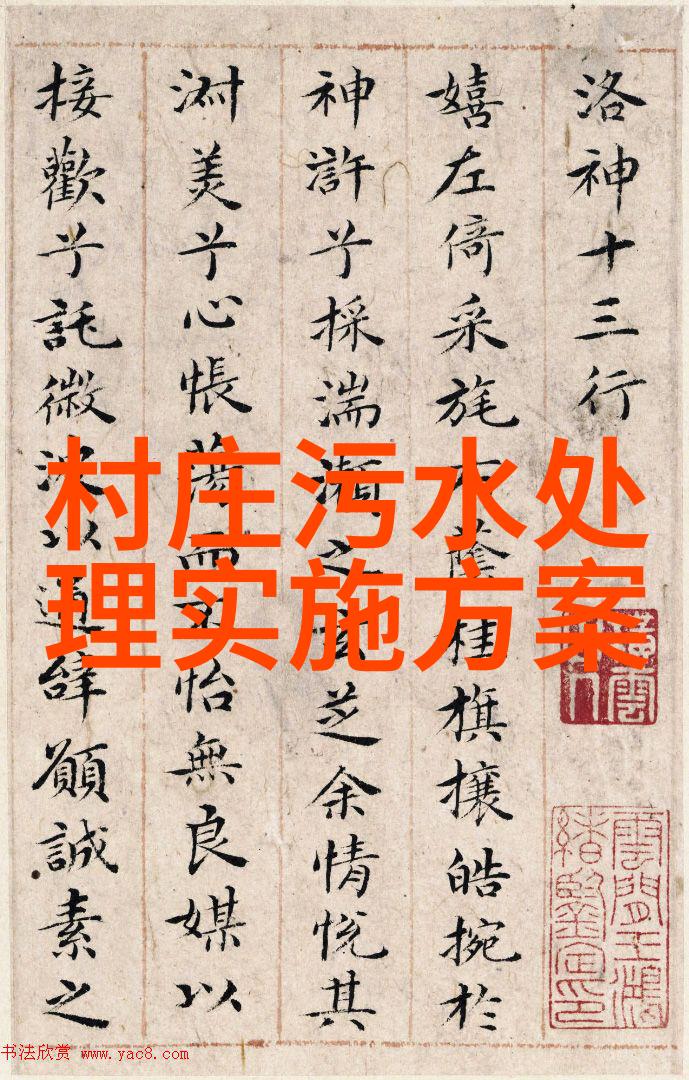 洛神十三行
嬉左倚采旄右蔭桂旗攘皓捥於
神滸兮採湍瀨之玄芝余情悅其
淑美兮心悵蕩而不怡無良媒以
接歡兮託微波以通辭願誠素之
村庄污水处
理实施方案
雲間王鴻
緒鑒定印
书法欣赏 www.yac8.com